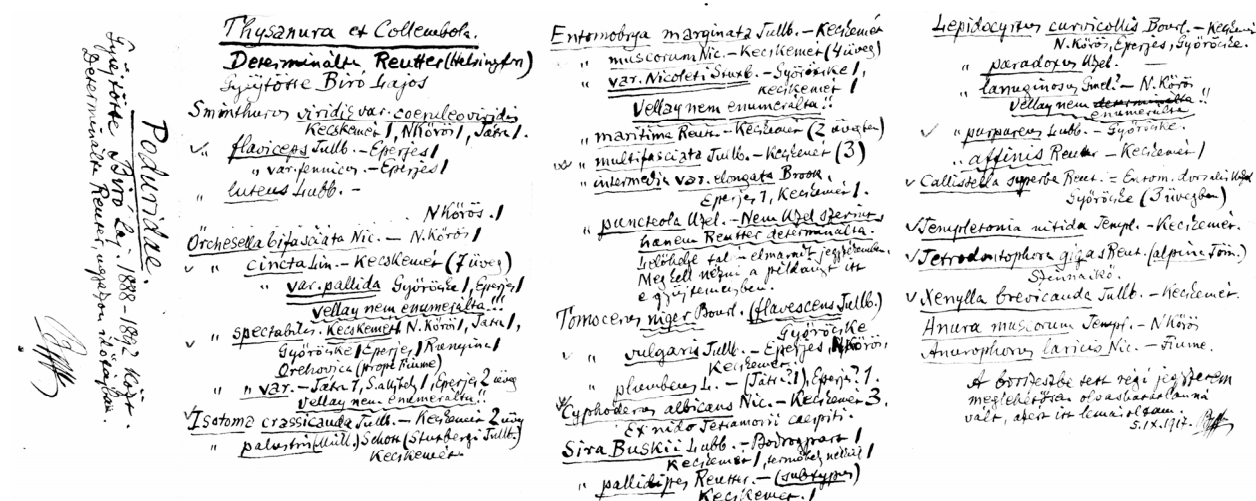 Poduridae.
Gyűjtötte Biró Laj. 1888-1892 közt.
Determinálta Reuter, ugyanazon időtájban.
Thysanura et Collembola.
Determinálta Reutter (Helsingfors)
Gyűjtötte Biró Lajos
Sminthurus viridis var. coeruleoviridis
Kecskemét 1, NKőrös 1, Tátra 1.
" flaviceps Tullb. - Eperjes 1
" var. fennicus - Eperjes 1
" luteus Lubb. -
N Kőrös. 1
Orchesella bifasciata Nic. - N. Kőrös 1
" cincta Lin. - Kecskemét (7 üveg)
" var. pallida Györöcske 1, Eperjes 1
Vellay nem enumerálta!!!
" spectabilis. Kecskemét N. Kőrös 1, Tátra 1,
Györöcske 1 Eperjes 1 Runyina 1
Orehovica (prope Fiume)
" var. - Tátra 1, S.a.Ujhely 1, Eperjes 2 üveg
Vellay nem enumerálta!!
Isotoma crassicauda Tullb. - Kecskemét 2 üveg
" palustris (Müll.) Schött (Stuxbergi Tullb.)
Kecskemét.
Entomobrya marginata Tullb. - Kecskemét
" muscorum Nic. - Kecskemét (4 üveg)
" var. Nicoleti Stuxb. - Györöcske 1,
Kecskemét 1
Vellay nem enumerálta!!
" maritima Reut. - Kecskemét (2 üvegben)
" multifasciata Tullb. - Kecskemét (3)
" intermedia var. elongata Brook.
Eperjes 1, Kecskemét 1.
" puncteola Uzel. - Nem Uzel szerint,
hanem Reutter determinálta.
Lelőhelye tal. elmaradt jegyzésemben.
Meg kell nézni a példányt itt
e gyűjteményben.
Tomocerus niger Bourl. (flavescens Tullb.)
Györöcske
" vulgaris Tullb. - Eperjes, NKőrös,
Kecskemét.
" plumbeus L. - (Tátra? 1), Eperjes? 1.
Cyphoderus albicans Nic. - Kecskemét 3.
Ex nido Tetramorii caespiti.
Sira Buskii Lubb. - Bodrogpart 1
Kecskemét 1, termőhely nélkül 1
" pallidipes Reutter. - (subtypus)
Kecskemét. 1
Lepidocyrtus curvicollis Bourl. - Kecskemét
N. Kőrös, Eperjes, Györöcske.
" paradoxus Uzel. -
" lanuginosus Gmel? - N. Kőrös
Vellay nem determinálta!!
enumerálta
" purpureus Lubb. - Györöcske.
" affinis Reutter - Kecskemét 1
Callistella superba Reut. = Entom. dorsalis Uzel
Györöcske (3 üvegben)
Templetonia nitida Templ. - Kecskemét.
Tetrodontophora gigas Reut. (alpina Töm.)
Sztinnaikő.
Xenylla brevicauda Tullb. - Kecskemét.
Anura muscorum Templ. - N'Kőrös
Anurophorus laricis Nic. - Fiume.
A borszeszbe tett régi jegyzékem
meglehetősen olvashatatlanná
vált, azért itt lemásoltam.
5. IX. 1917.